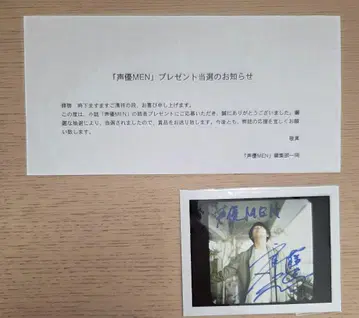 「声優MEN」プレゼント当選のお知らせ
様
時下ますますご清祥の段、お慶び申し上げます。
この度は、小誌「声優MEN」の読者プレゼントにご応募いただき、誠にありがとうございました。厳
正な抽選により、当選されましたので、賞品をお送り致します。今後とも、弊誌の応援を宜しくお願
い致します。
敬具
「声優MEN」編集部一同
声優MEN